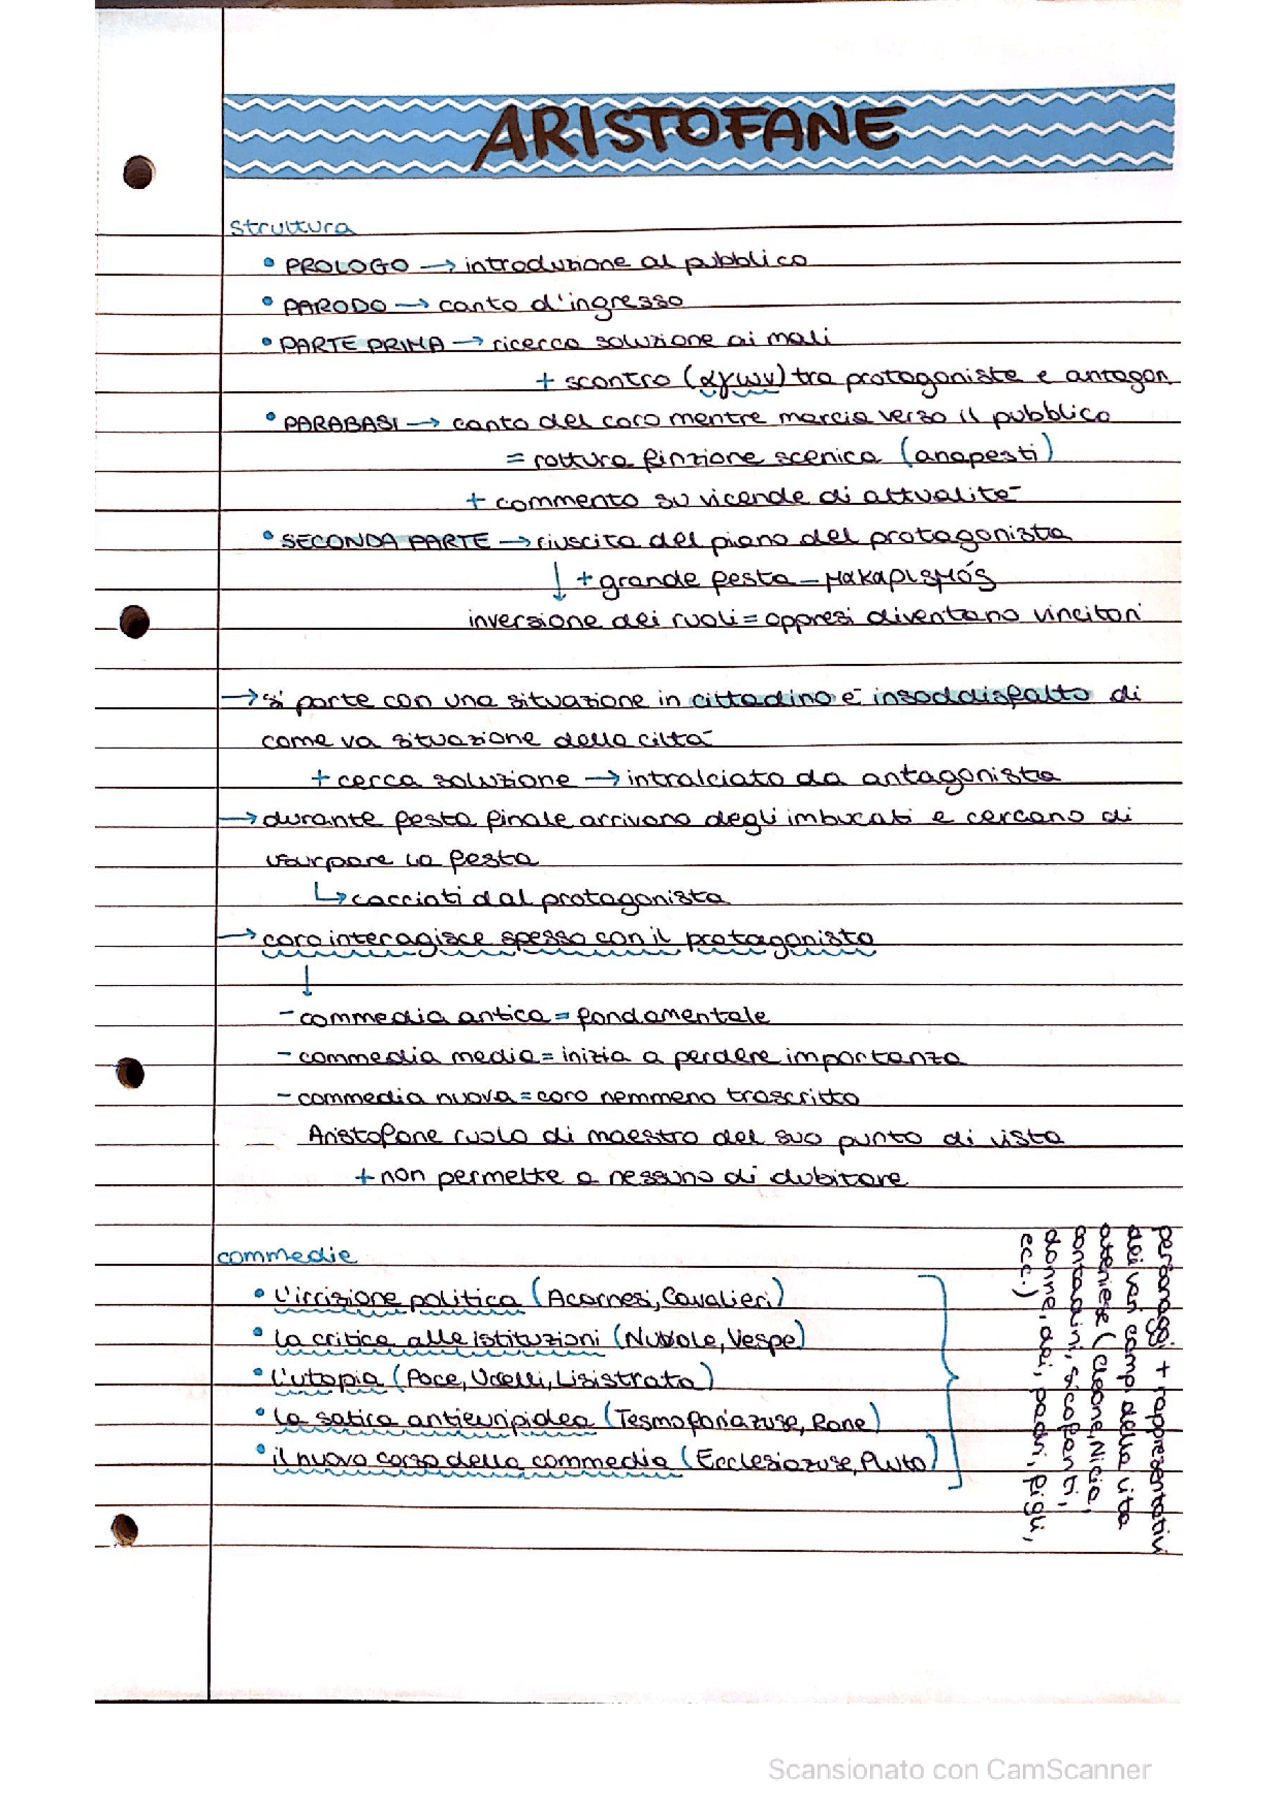 ARISTOFANE
struttura
• PROLOGO → introduzione al pubblico
• PARODO → canto d'ingresso
• PARTE PRIMA → ricerca soluzione ai mali
+ scontro (αγων) tra protagonista e antagon.
• PARABASI → canto del coro mentre marcia verso il pubblico
= rottura finzione scenica (anapesti)
+ commento su vicende di attualità
• SECONDA PARTE → riuscita del piano del protagonista
↓ + grande festa – μακαρισμός
inversione dei ruoli = oppressi diventano vincitori
→ si parte con una situazione in cittadino è insoddisfatto di
come va situazione della città
+ cerca soluzione → intralciato da antagonista
→ durante festa finale arrivano degli imbucati e cercano di
usurpare la festa
↳ cacciati dal protagonista
→ coro interagisce spesso con il protagonista
↓
- commedia antica = fondamentale
- commedia media = inizia a perdere importanza
- commedia nuova = coro nemmeno trascritto
Aristofane ruolo di maestro del suo punto di vista
+ non permette a nessuno di dubitare
commedie
• l'irrisione politica (Acarnesi, Cavalieri)
• la critica alle istituzioni (Nuvole, Vespe)
• l'utopia (Pace, Uccelli, Lisistrata)
• la satira antieuripidea (Tesmoforiazuse, Rane)
• il nuovo corso della commedia (Ecclesiazuse, Pluto)
personaggi + rappresentativi
dei vari campi della vita
ateniese (Cleone, Nicia,
contadini, sicofanti,
donne, dei, padri, figli,
ecc.)
Scansionato con CamScanner